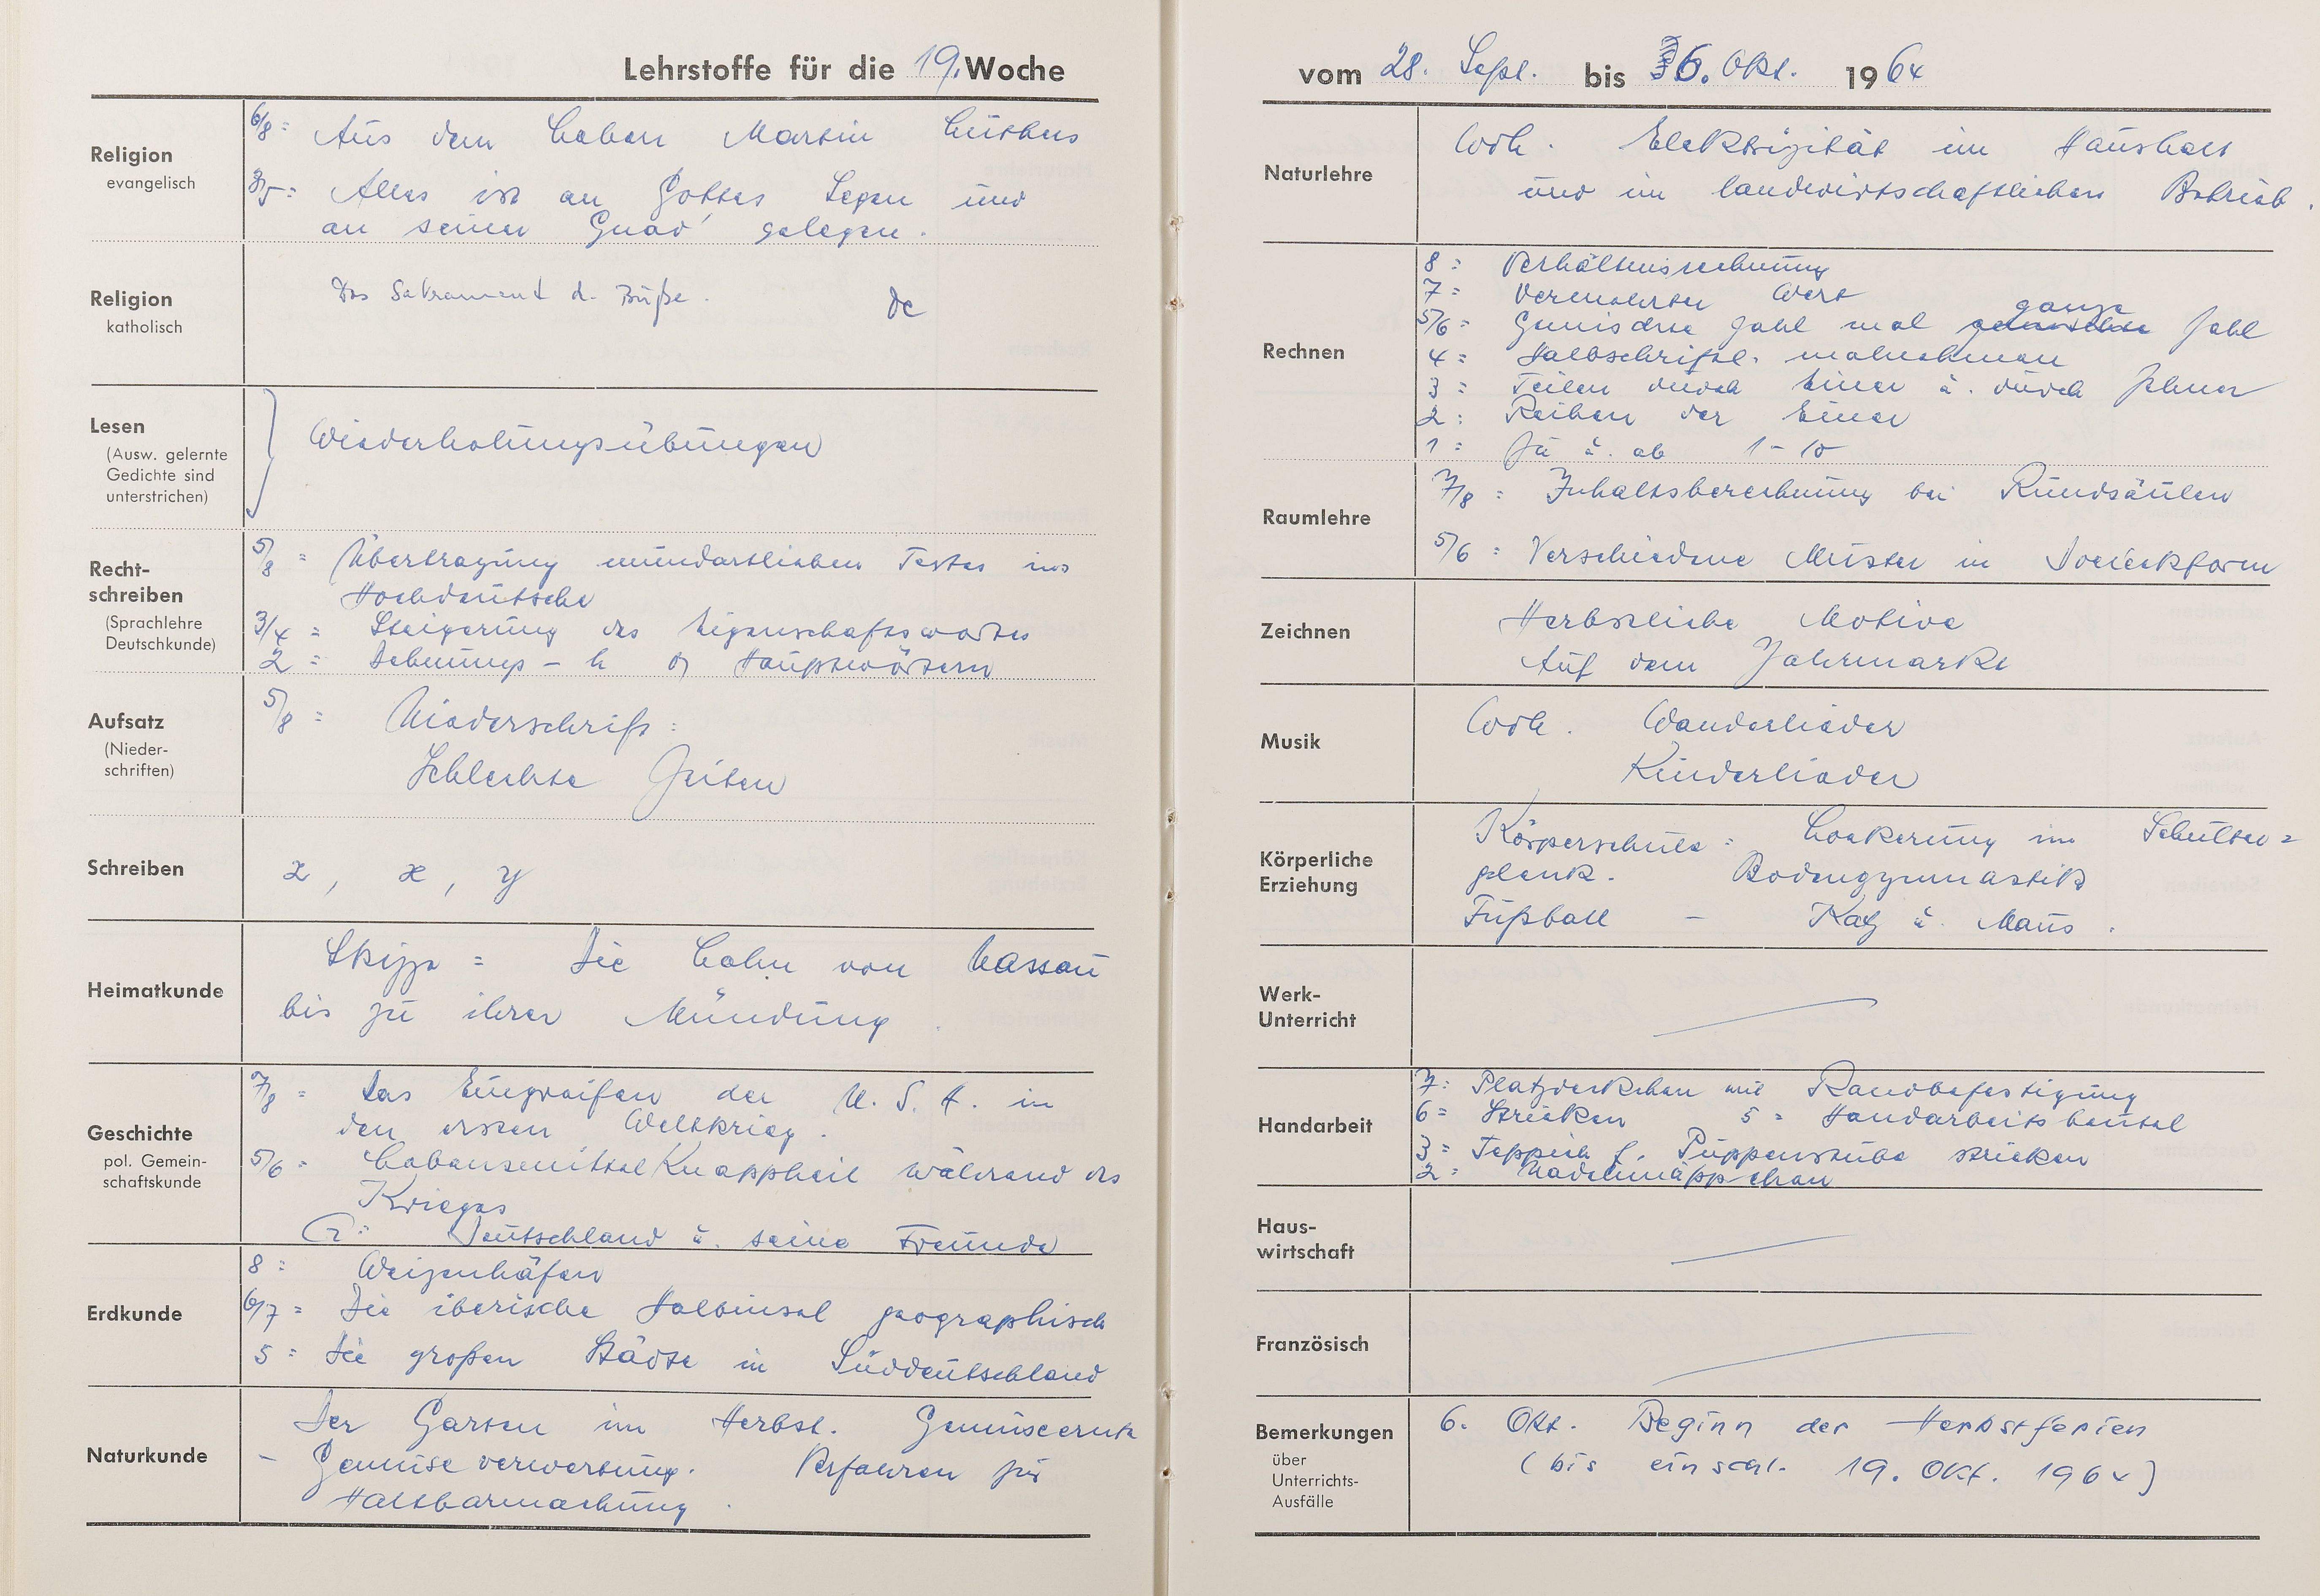 Lehrstoffe für die 19. Woche
Religion
evangelisch
6/8 = Aus dem Leben Martin Luthers
3/5 = Alles ist an Gottes Segen und
an seiner Gnad' gelegen.
Religion
katholisch
Das Sakrament d. Buße.
Lesen
(Ausw. gelernte
Gedichte sind
unterstrichen)
Wiederholungsübungen
Recht-
schreiben
(Sprachlehre
Deutschkunde)
5/8 = Übertragung mundartlichen Textes ins
Hochdeutsche
3/4 = Steigerung des Eigenschaftswortes
2 = Dehnungs-h Hauptwörtern
Aufsatz
(Nieder-
schriften)
5/8 = Niederschrift:
Schlechte Zeiten
Schreiben
z, x, y
Heimatkunde
Skizze = Die Lahn von Nassau
bis zu ihrer Mündung.
Geschichte
pol. Gemein-
schaftskunde
7/8 = Das Eingreifen der U.S.A. in
den ersten Weltkrieg.
5/6 = Lebensmittelknappheit während des
Krieges
G = Deutschland u. seine Freunde
Erdkunde
8 = Weizenhäfen
6/7 = Die iberische Halbinsel geographisch
5 = Die großen Städte in Süddeutschland
Naturkunde
Der Garten im Herbst. Gemüseernte
- Gemüseverwertung. Verfahren zur
Haltbarmachung.
vom 28. Sept. bis 6. Okt. 1964
Naturlehre
Wdh. Elektrizität im Haushalt
und im landwirtschaftlichen Betrieb.
Rechnen
8 = Verhältnisrechnung
7 = Vermehrter Wert
ganze
5/6 = Gemischte Zahl mal gemischte Zahl
4 = Halbschriftl. malnehmen
3 = Teilen durch Einer u. durch Zehner
2 = Reihen der Einer
1 = Zu u. ab 1-10
Raumlehre
7/8 = Inhaltsberechnung bei Rundsäulen
5/6 = Verschiedene Muster in Dreieckform
Zeichnen
Herbstliche Motive
Auf dem Jahrmarkt
Musik
Wdh. Wanderlieder
Kinderlieder
Körperliche
Erziehung
Körperschule: Lockerung im Schulter=
gelenk. Bodengymnastik
Fußball - Katz u. Maus.
Werk-
Unterricht
Handarbeit
7 = Platzdeckchen mit Randbefestigung
6 = Stricken 5 = Handarbeitsbeutel
3 = Teppich f. Puppenstube stricken
2 = Nadelmäppchen
Haus-
wirtschaft
Französisch
Bemerkungen
über
Unterrichts-
Ausfälle
6. Okt. Beginn der Herbstferien
(bis einschl. 19. Okt. 1964)